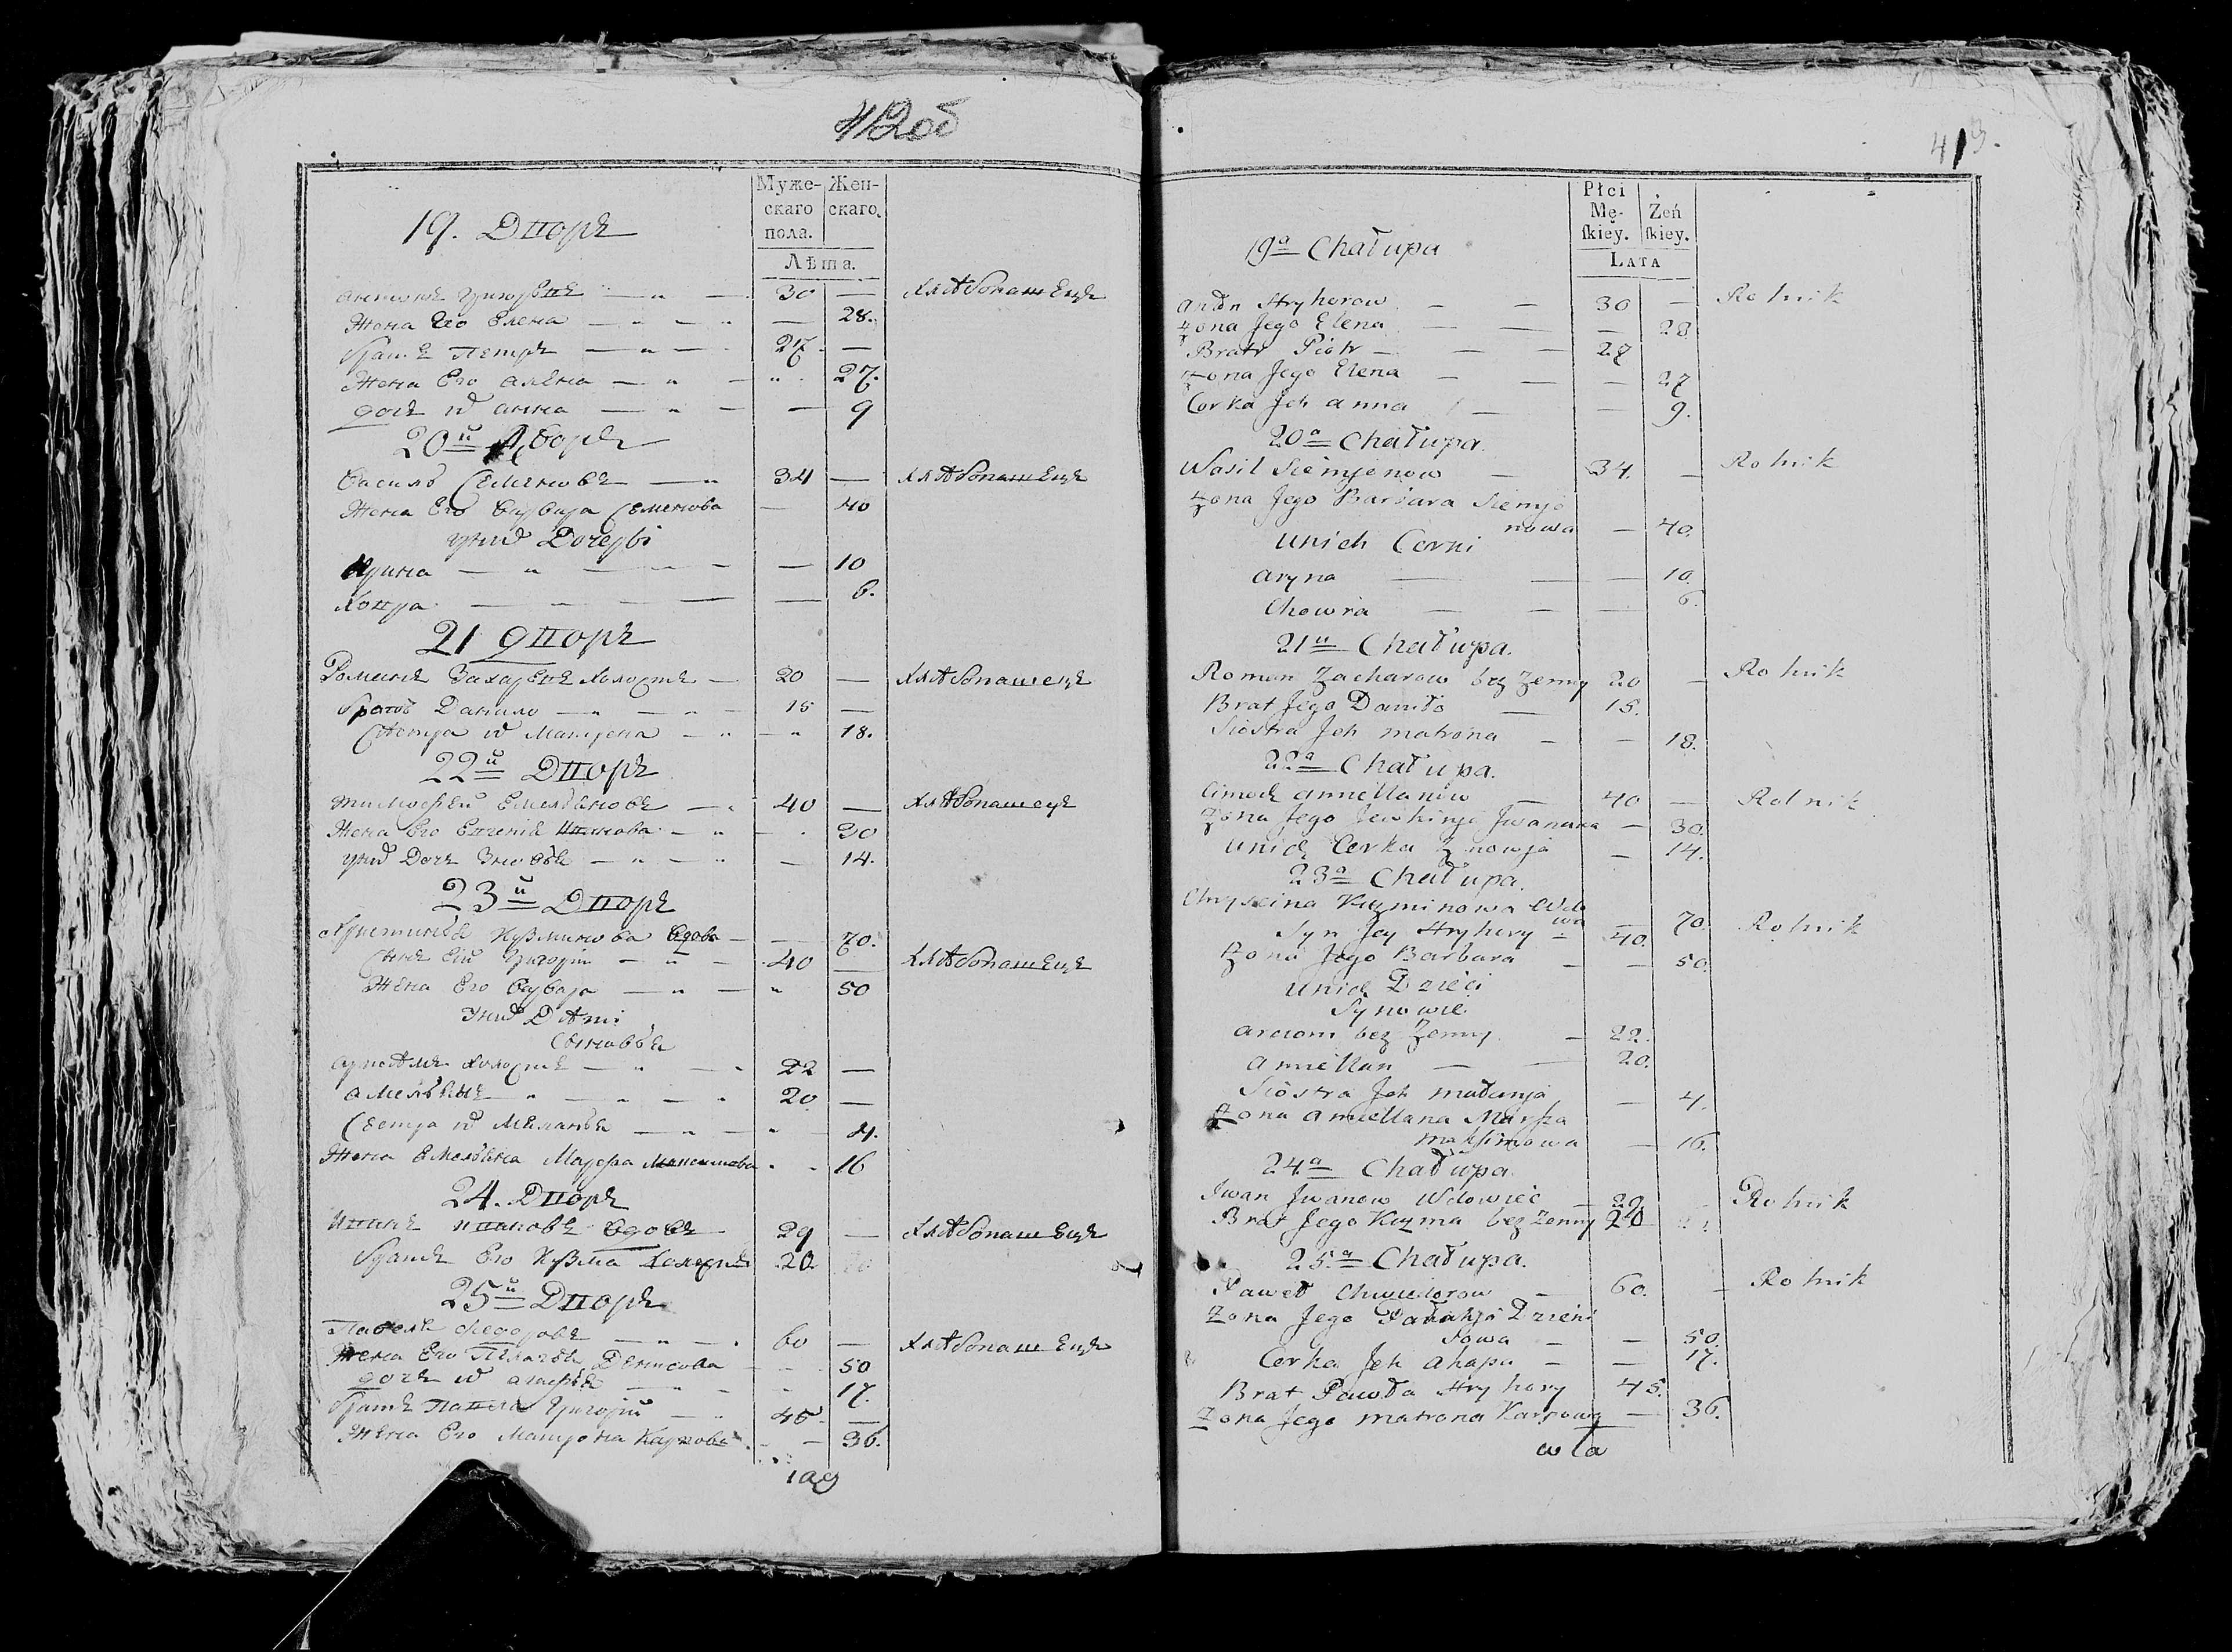 412об
Муже-
скаго
пола.
Жен-
скаго.
Лѣта.
19. Дворъ
Антонъ Григорьевъ — 30 — Хлѣбопашецъ
Жена Его Елена — — 28.
Братъ Петръ — 27 —
Жена Его Алена — 27.
дочь их Анна — — 9
20й Дворъ
Василь Семеновъ — 34 — Хлѣбопашецъ
Жена Его Варвара Семенова — 40
у них Дочери
Ирина — — 10
Ховра — — 6.
21 дворъ
Романъ Захаревъ холостъ — 20 — Хлѣбопашецъ
братъ Данило — 15 —
Сестра их Матрена — 18.
22й Дворъ
Тимофей Емельяновъ — 40 — Хлѣбопашецъ
Жена Его Евгенія Иванова — 30
у них Дочь Зиновья — 14.
23й Дворъ
Христинья Кузминова вдова — 70.
Сынъ Ей Григорій — 40 — Хлѣбопашецъ
Жена Его Варвара — 50
у них Дѣти
Сыновья
Артемъ холостъ — 22 —
Амельянъ — 20 —
Сестра их Меланья — 4.
Жена Емельяна Марфа Максимова 16
24. Дворъ
Иванъ Ивановъ вдовъ 29 — Хлѣбопашецъ
Братъ Его Кузма холостъ 20.
25й Дворъ
Павелъ Федоровъ — 60 — Хлѣбопашецъ
Жена Его Пелагея Денисова — 50
дочь их Агафья — 17.
Братъ Павела Григорій — 45 —
Жена Его Матрона Карпова — 36.
413.
Płci
Mę-
ſkiey.
Żeń
ſkiey.
Lata
19a Chałupa
Anton Hryhorow — — 30 — Rolnik
Zona Jego Elena — — — 28
Bratr Piotr — — — 27
Zona Jego Elena — — — 27
Corka Jch Anna — — 9.
20a Chałupa
Wasil Siemjonow — 34. — Rolnik
Zona Jego Barbara Siemjo
nowa — 40.
Unich Corki
Aryna — — — 10.
Chowra — — — 6.
21a Chałupa.
Roman Zacharow bez Zenny 20 — Rolnik
Brat Jego Daniło — 15.
Siostra Jch Matrona — — 18.
22a Chałupa.
Cimoch Amiellanow — 40 — Rolnik
Zona Jego Jewhinja Jwanawa — 30.
Unich Corka Znowja — 14.
23a Chałupa.
Chryscina Kuzminowa Wdo
wa — 70.
Syn Jey Hryhory — 40. Rolnik
Zona Jego Barbara — — 50.
Unich Dzieci
Synowie
Arciom bez Zenny — 22.
Amiellan — — 20.
Siostra Jch Małanja — 4.
Zona Amiellana Marfa
Maksimowa — 16.
24a Chałupa.
Jwan Jwanow Wdowiec — 29 Rolnik
Brat Jego Kuzma bez Zenny 20
25a Chałupa.
Paweł Chwiedorow — 60. — Rolnik
Zona Jego Pałahja Dzieni
sowa — — 50.
Corka Jch Ahapa — — 17.
Brat Pawła Hryhory 45.
Zona Jego Matrona Karpowa — 36.